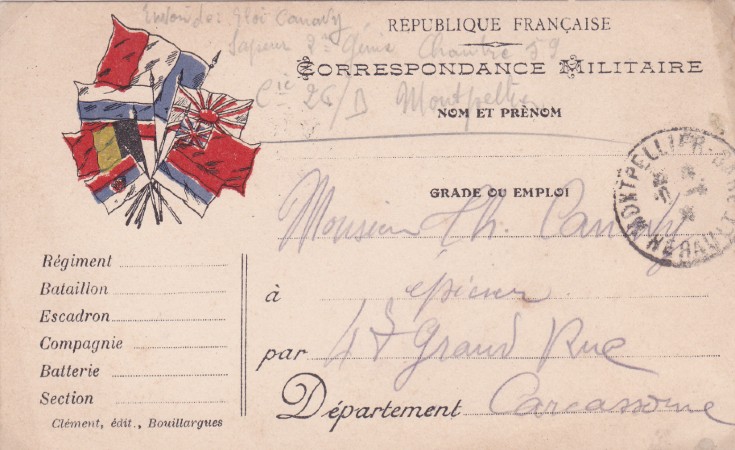 RÉPUBLIQUE FRANÇAISE
CORRESPONDANCE MILITAIRE
Sapeur 2me Génie Chambre 59
Cie 26/D Montpellier
NOM ET PRÉNOM
GRADE OU EMPLOI
Monsieur Ch.
épicier
à
47 Grand Rue
par
Carcassonne
Département
Régiment
Bataillon
Escadron
Compagnie
Batterie
Section
Clément, édit., Bouillargues
MONTPELLIER-GARE
HERAULT